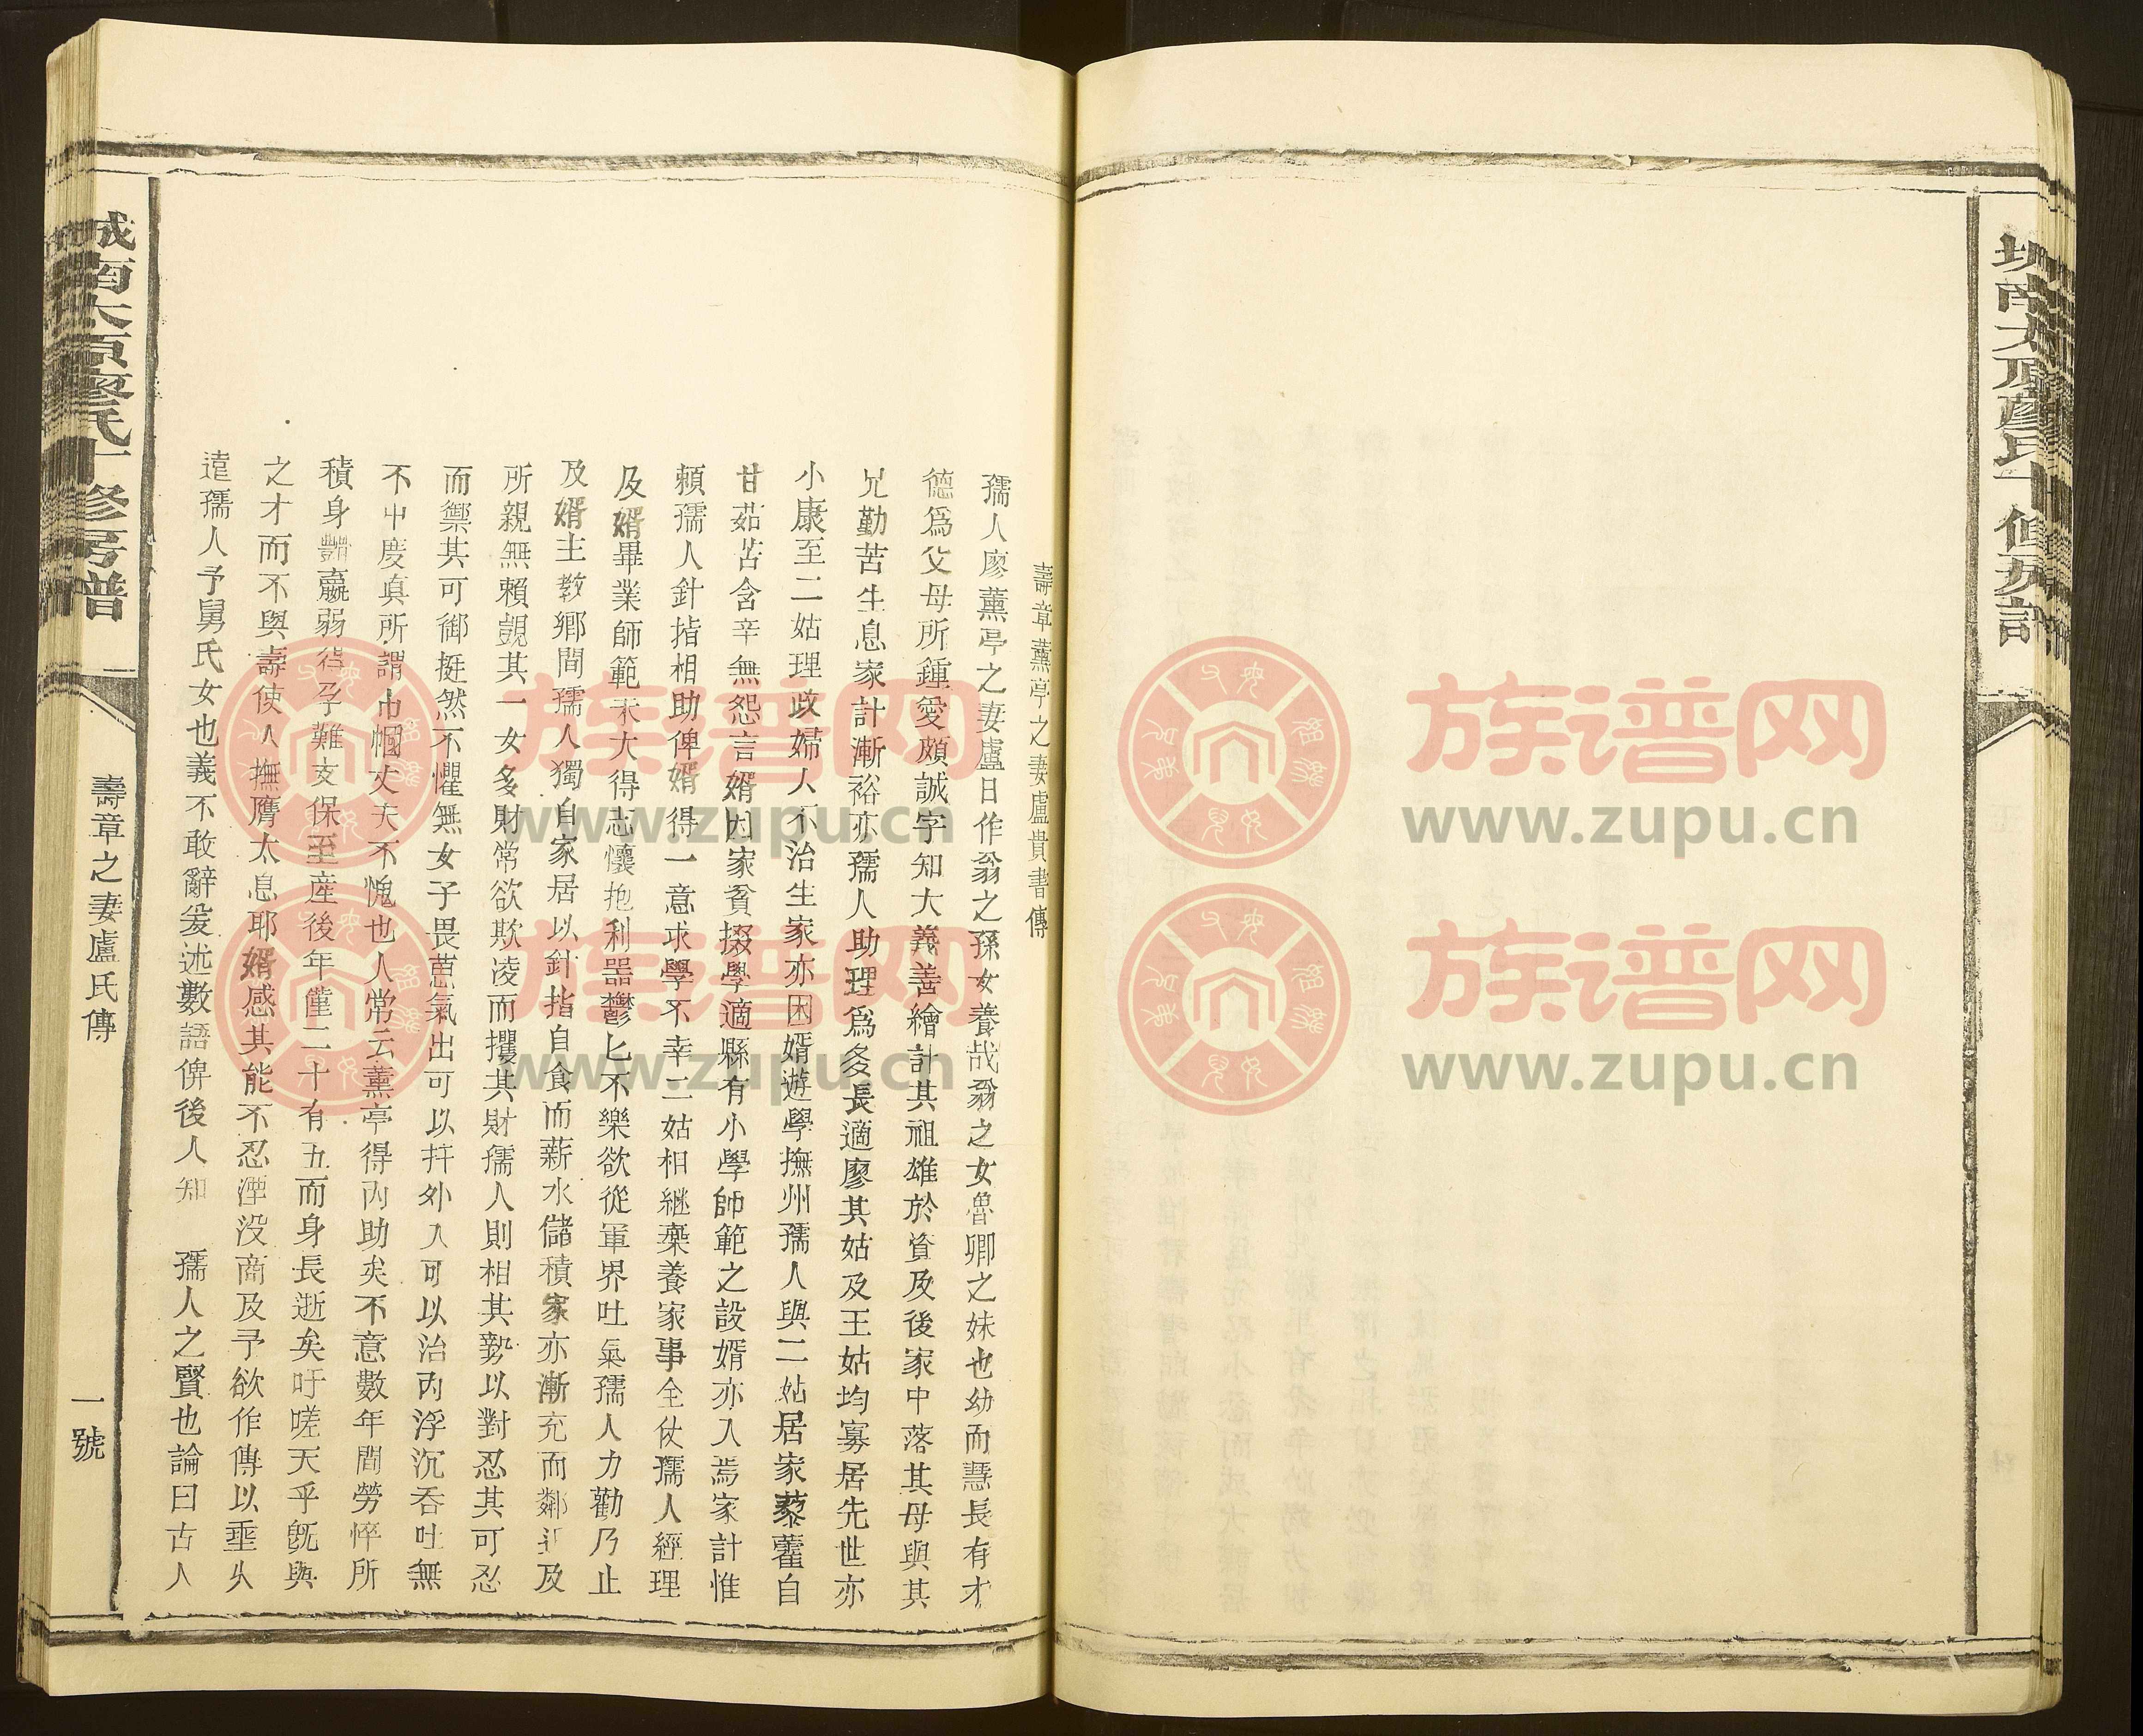 城南太原廖氏十修房譜
壽章薰亭之妻盧貴書傳
孺人廖薰亭之妻盧日作翁之孫女養哉翁之女魯卿之妹也幼而慧長有才
德爲父母所鍾愛頗誠字知大義善繪計其祖雄於貲及後家中落其母與其
兄勤苦生息家計漸裕亦孺人助理爲多長適廖其姑及王姑均寡居先世亦
小康至二姑理政婦人不治生家亦困婿遊學撫州孺人與二姑居家藜藿自
甘茹苦含辛無怨言婿因家貧掇學適縣有小學師範之設婿亦入焉家計惟
賴孺人針指相助俾婿得一意求學不幸二姑相継棄養家事全仗孺人經理
及婿畢業師範未大得志懷抱利噐鬱匕不樂欲從軍界吐氣孺人力勸乃止
及婿主教鄉間孺人獨自家居以針指自食而薪水儲積家亦漸充而鄰近及
所親無賴覬其一女多財常欲欺凌而攫其財孺人則相其勢以對忍其可忍
而禦其可御挺然不懼無女子畏葸氣出可以扞外入可以治内浮沉吞吐無
不中度真所謂巾幗丈夫不愧也人常云薰亭得内助矣不意數年間勞悴所
積身體羸弱得孕難支保至産後年僅二十有五而身長逝矣吁嗟天乎旣與
之才而不與壽使人撫膺太息耶婿感其能不忍湮没商及予欲作傳以垂久
遠孺人予舅氏女也義不敢辭爰述數語俾後人知 孺人之賢也論曰古人
城南太原廖氏十修房譜
壽章之妻盧氏傳
一號
族谱网
www.zupu.cn
族谱网
www.zupu.cn
族谱网
www.zupu.cn
族谱网
www.zupu.cn